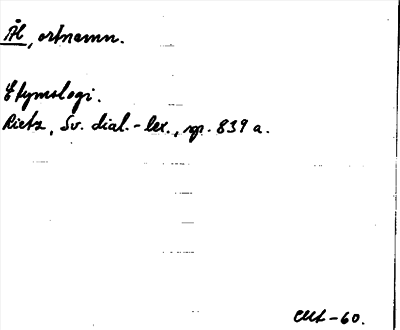 Ål, ortnamn.
Etymologi.
Rietz, Sv. dial.-lex., sp. 839 a.
-60.